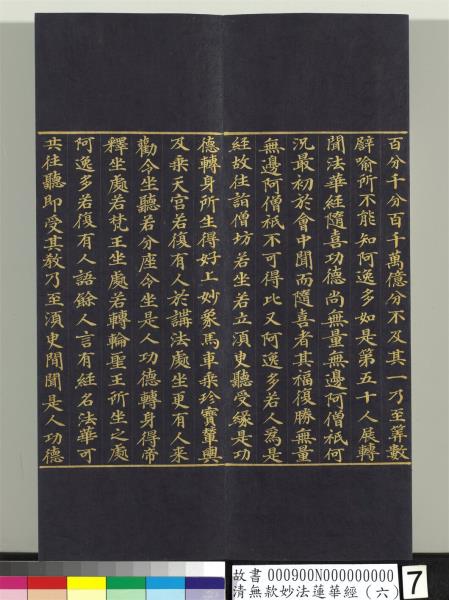 百分千分百千萬億分不及其一乃至筭數
譬喻所不能知阿逸多如是第五十人展轉
聞法華經隨喜功德尚無量無邊阿僧祇何
況最初於會中聞而隨喜者其福復勝無量
無邊阿僧祇不可得比又阿逸多若人為是
經故往詣僧坊若坐若立須臾聽受緣是功
德轉身所生得好上妙象馬車乘珍寶輦輿
及乘天宮若復有人於講法處坐更有人來
勸令坐聽若分座令坐是人功德轉身得帝
釋坐處若梵王坐處若轉輪聖王所坐之處
阿逸多若復有人語餘人言有經名法華可
共往聽即受其教乃至須臾間聞是人功德
故書 000900N000000000
清無款妙法蓮華經(六)
7